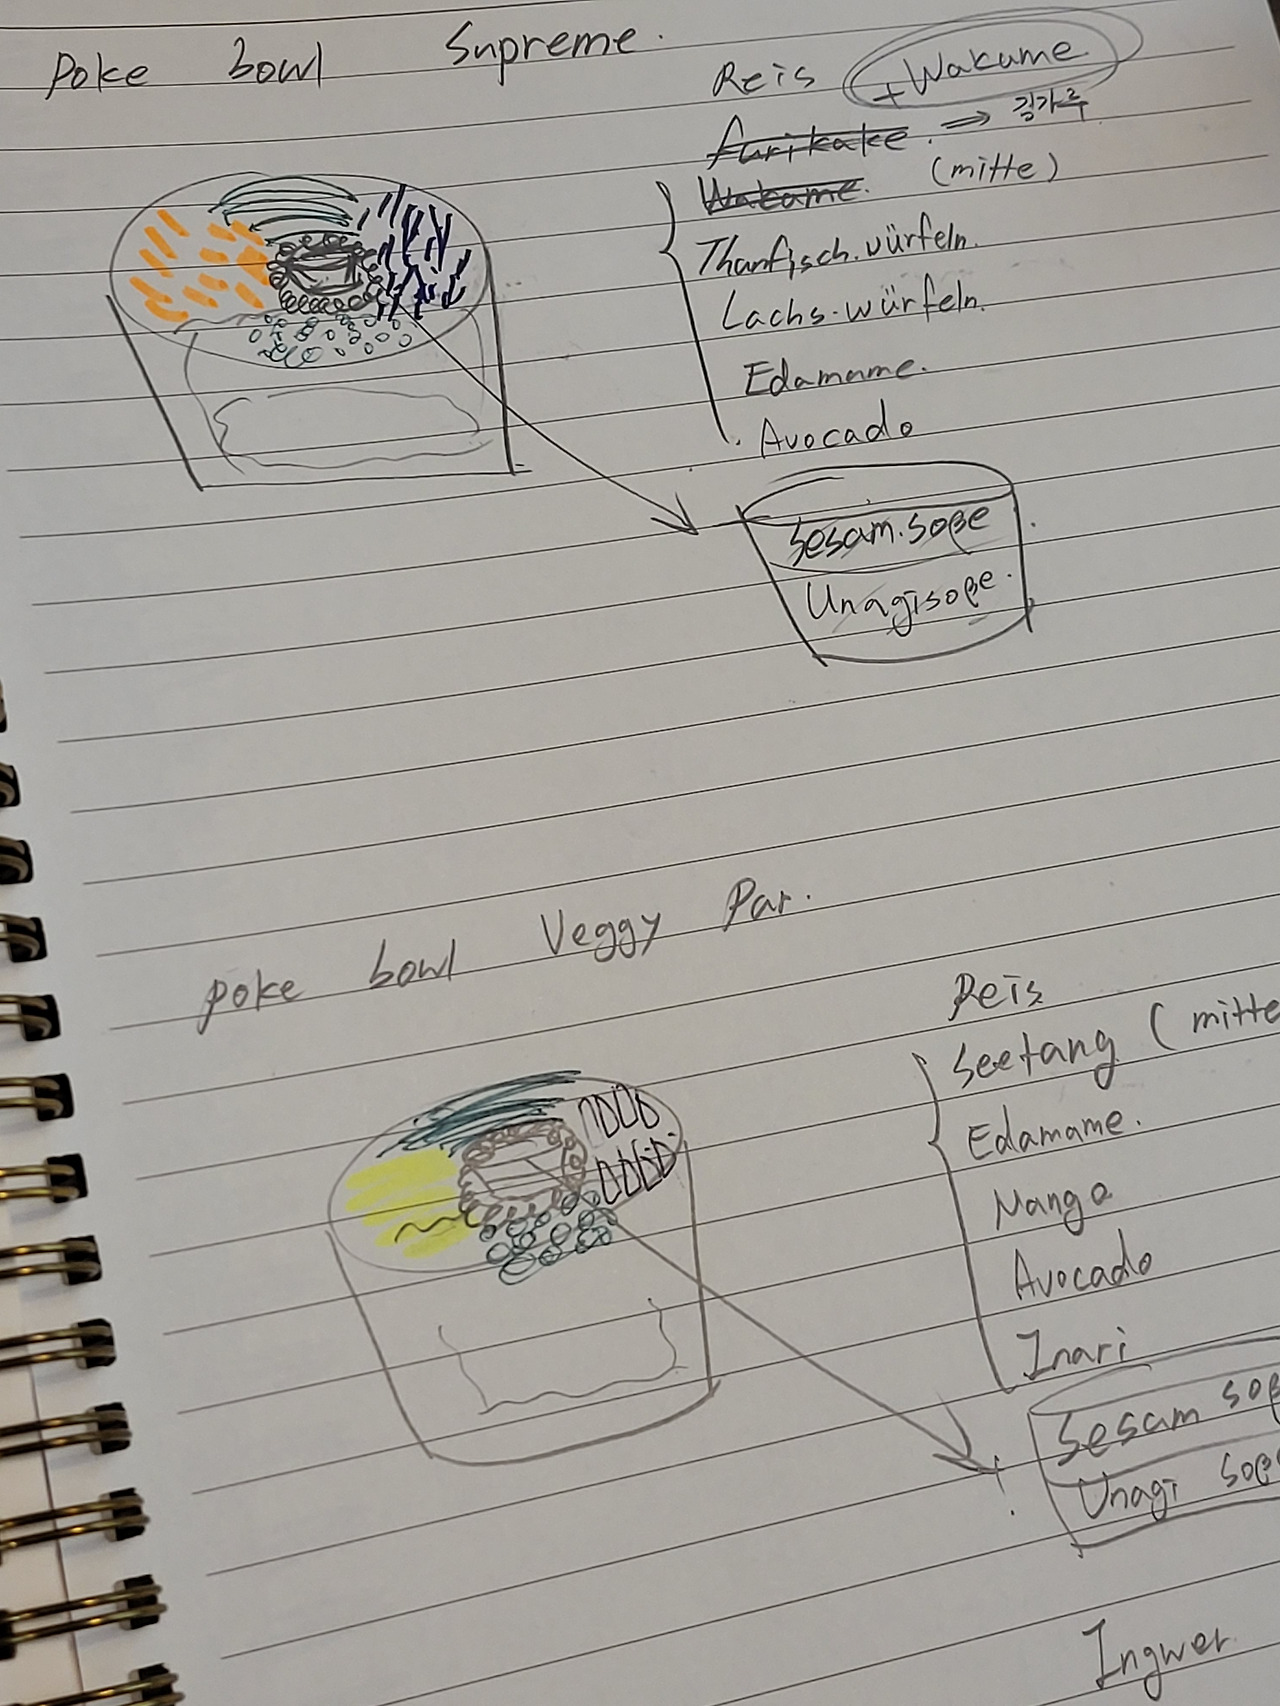 Poke bowl Supreme.
Reis +Wakame
Furikake. ⇒ 김가루
Wakame. (mitte)
Thanfisch.würfeln.
Lachs.würfeln.
Edamame.
Avocado
Sesam.soße
Unagisoße.
Poke bowl Veggy Par.
Reis
Seetang (mitte
Edamame.
Mango
Avocado
Inari
Sesam soß
Unagi soße
Ingwer